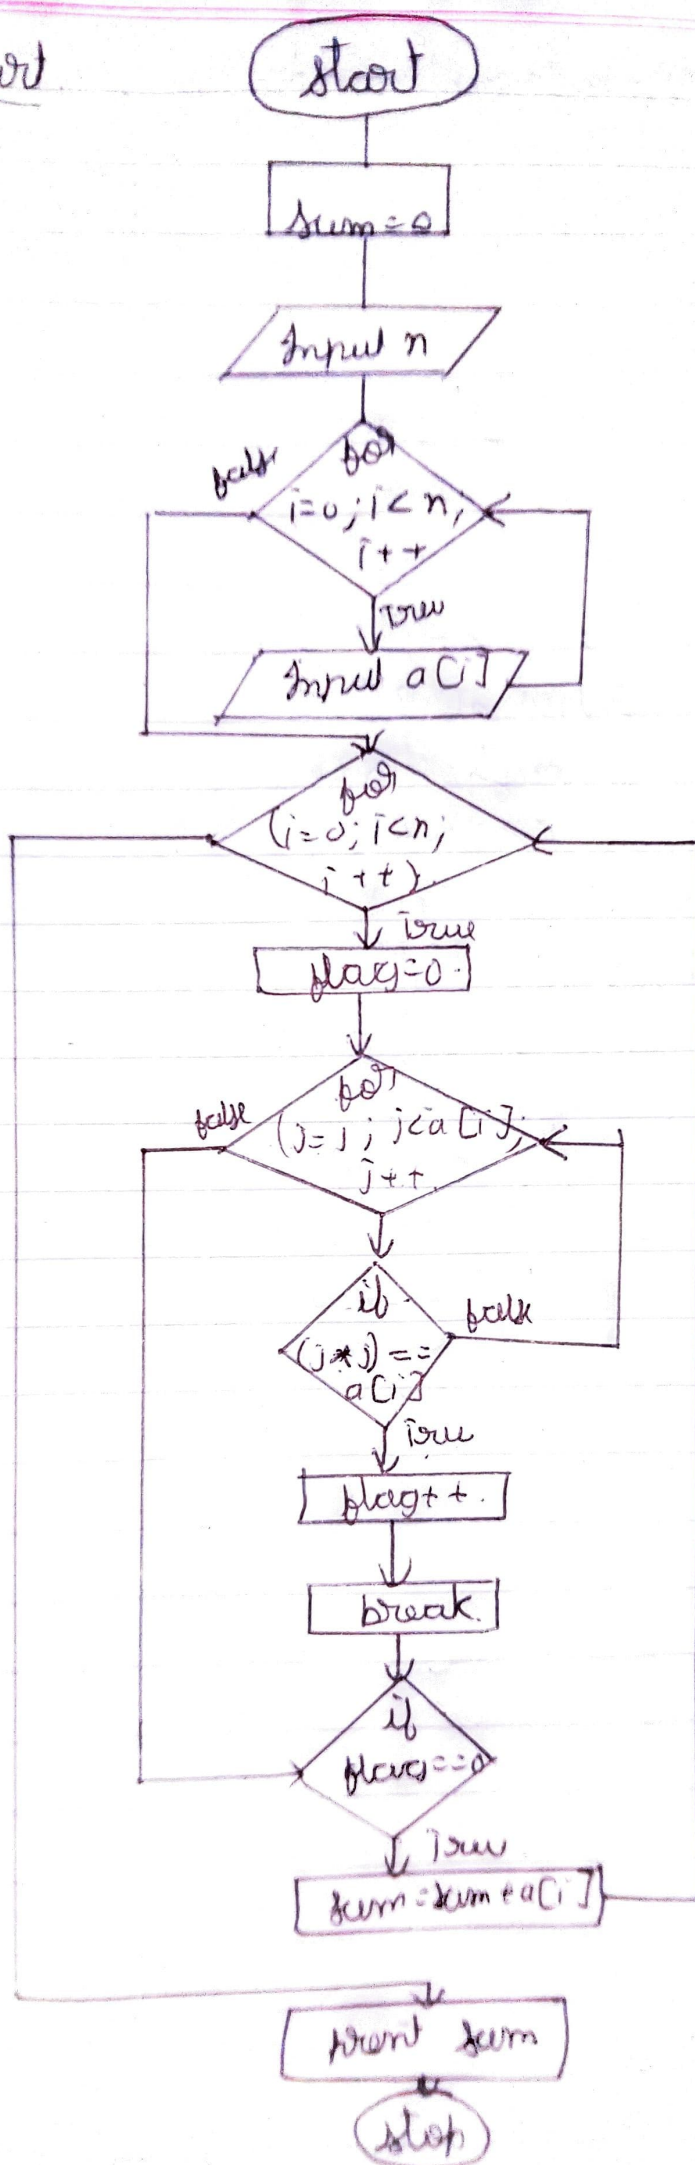 start
sum=0
Input n
false
for
i=0; i<n;
i++
True
Input a[i]
for
(i=0; i<n;
i++).
True
flag=0.
false
for
(j=j; j<a[i];
j++.
if
(j*j)==
a[i]
false
True
flag++.
break.
if
flag==0
True
sum=sum+a[i]
print sum
stop